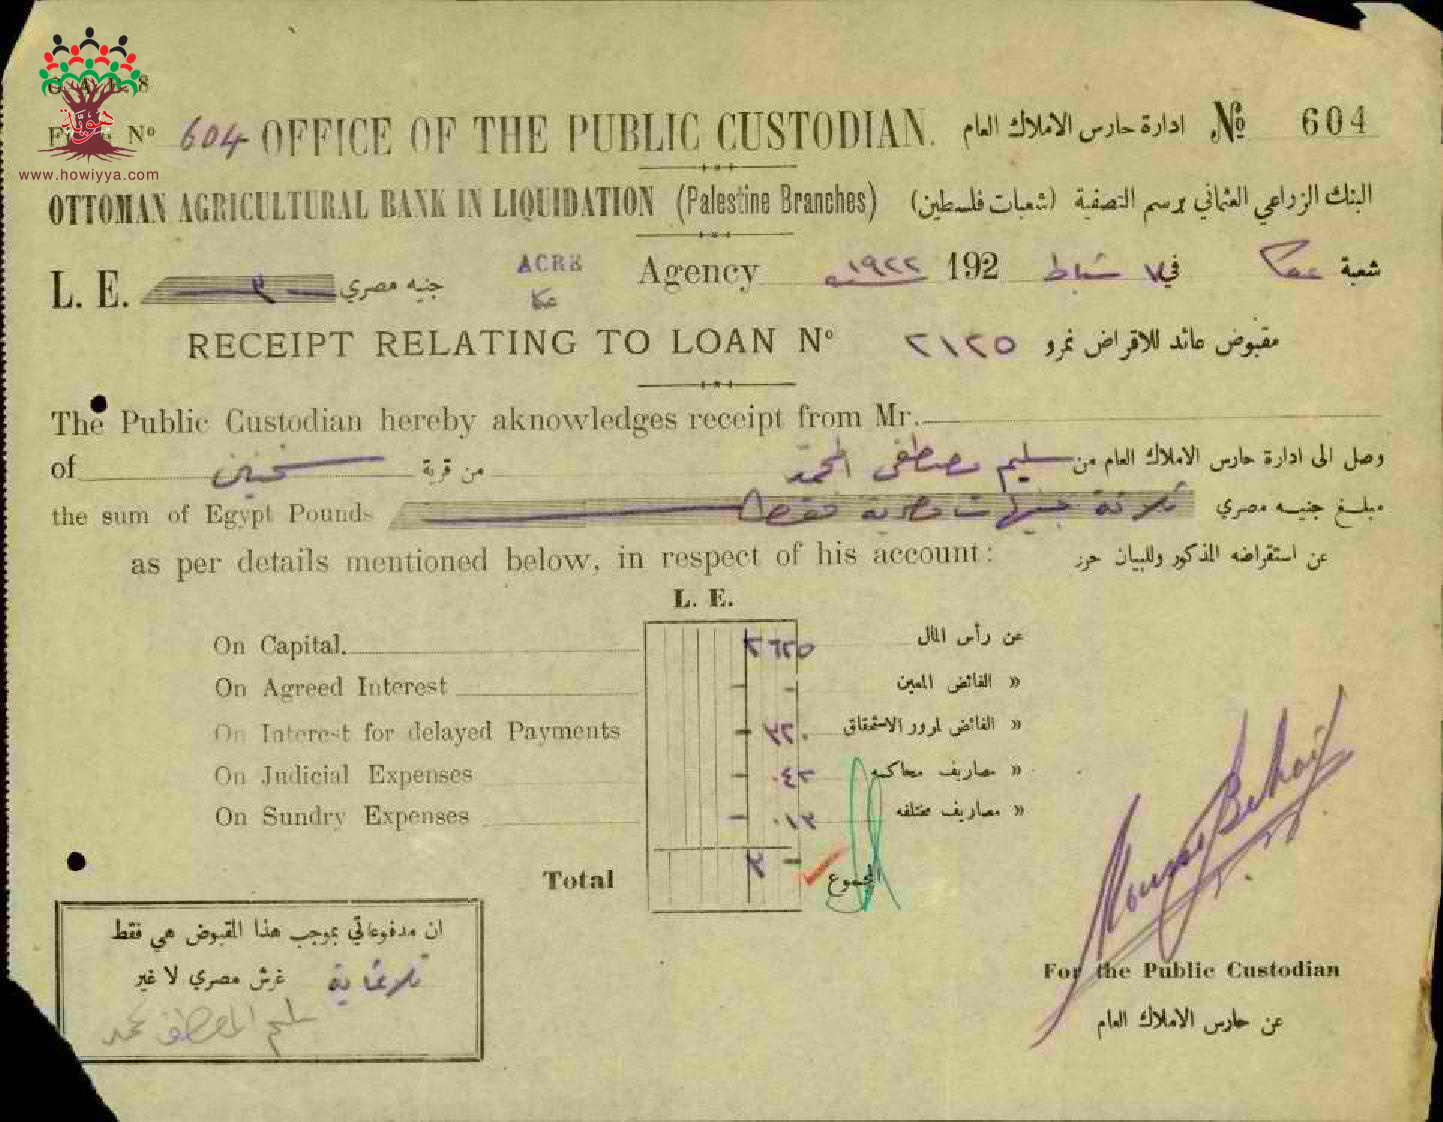 604 OFFICE OF THE PUBLIC CUSTODIAN. ادارة حارس الاملاك العام № 604
www.howiyya.com
OTTOMAN AGRICULTURAL BANK IN LIQUIDATION (Palestine Branches) البنك الزراعي العثماني برسم التصفية (شعبات فلسطين)
شعبة عكا في ١٧ شباط 192 ١٩٢٢ Agency ACRE
L. E. ٣ جنيه مصري عكا
RECEIPT RELATING TO LOAN Nº ٢١٢٥ مقبوض عائد للاقراض نمرو
The Public Custodian hereby aknowledges receipt from Mr.
of سخنين من قرية سليم مصطفى المحمد وصل الى ادارة حارس الاملاك العام من
the sum of Egypt Pounds ثلاثة جنيهات مصرية فقط مبلغ جنيه مصري
as per details mentioned below, in respect of his account: عن استقراضه المذكور وللبيان حرر
L. E.
On Capital. ٢ ٦٢٥ عن رأس المال
On Agreed Interest - - » الفائض المعين
On Interest for delayed Payments - ٣٢٠ » الفائض لمرور الاستحقاق
On Judicial Expenses - ٠٤٢ » مصاريف محاكمه
On Sundry Expenses - ٠١٣ » مصاريف مختلفه
Total ٣ - المجموع
ان مدفوعاتي بموجب هذا المقبوض هي فقط
ثلاثماية غرش مصري لا غير
سليم المصطفى محمد
For the Public Custodian
عن حارس الاملاك العام